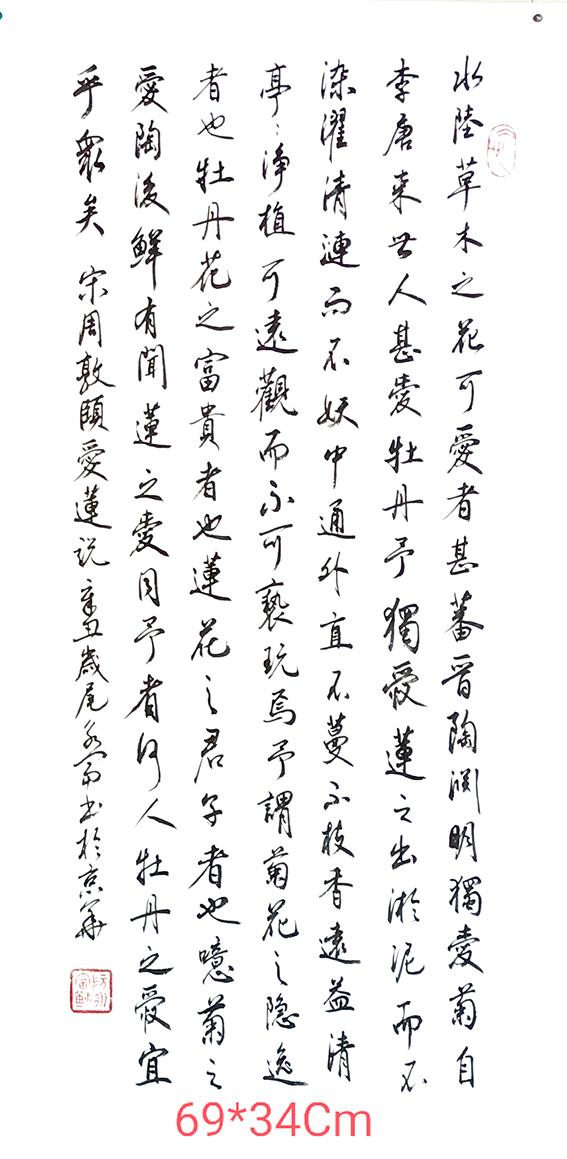 水陸草木之花可愛者甚蕃晋陶渊明獨愛菊自
李唐来世人甚愛牡丹予獨愛蓮之出淤泥而不
染濯清漣而不妖中通外直不蔓不枝香遠益清
亭〻淨植可遠觀而不可褻玩焉予謂菊花之隐逸
者也牡丹花之富貴者也蓮花之君子者也噫菊之
愛陶後鮮有聞蓮之愛同予者何人牡丹之愛宜
乎衆矣 宋周敦頤愛蓮说 辛丑歲尾 书於京華
69*34Cm